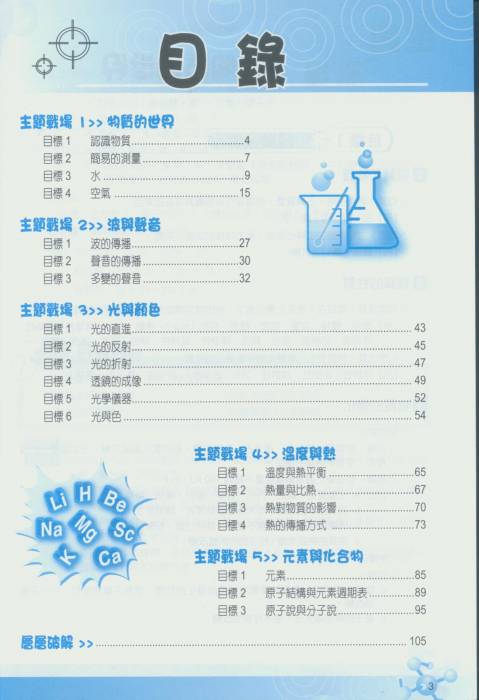 目錄
主題戰場 1>> 物質的世界
目標 1 認識物質 4
目標 2 簡易的測量 7
目標 3 水 9
目標 4 空氣 15
主題戰場 2>> 波與聲音
目標 1 波的傳播 27
目標 2 聲音的傳播 30
目標 3 多變的聲音 32
主題戰場 3>> 光與顏色
目標 1 光的直進 43
目標 2 光的反射 45
目標 3 光的折射 47
目標 4 透鏡的成像 49
目標 5 光學儀器 52
目標 6 光與色 54
主題戰場 4>> 溫度與熱
目標 1 溫度與熱平衡 65
目標 2 熱量與比熱 67
目標 3 熱對物質的影響 70
目標 4 熱的傳播方式 73
Li H Be
Na Mg Sc
K Ca
主題戰場 5>> 元素與化合物
目標 1 元素 85
目標 2 原子結構與元素週期表 89
目標 3 原子說與分子說 95
層層破解 >> 105
3